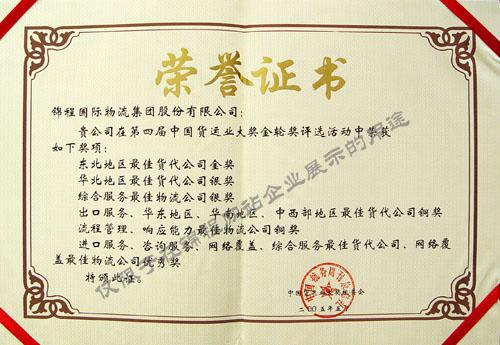 荣誉证书
锦程国际物流集团股份有限公司：
贵公司在第四届中国货运业大奖金轮奖评选活动中荣获
如下奖项：
东北地区最佳货代公司金奖
华北地区最佳货代公司银奖
综合服务最佳物流公司银奖
出口服务、华东地区、华南地区、中西部地区最佳货代公司铜奖
流程管理、响应能力最佳物流公司铜奖
进口服务、咨询服务、网络覆盖、综合服务最佳货代公司、网络覆
盖最佳物流公司优秀奖
特颁此证。
二〇〇五年五月
仅限于在锦程网站企业展示的用途